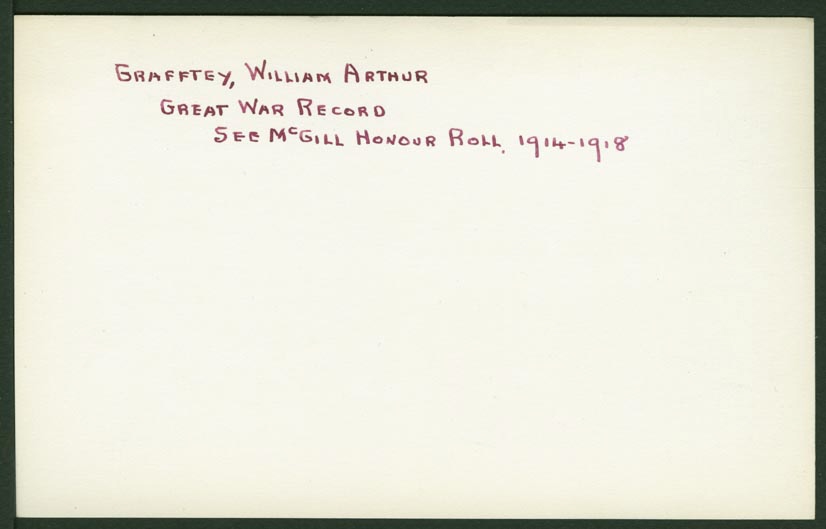 GRAFFTEY, WILLIAM ARTHUR
GREAT WAR RECORD
SEE McGILL HONOUR ROLL, 1914-1918